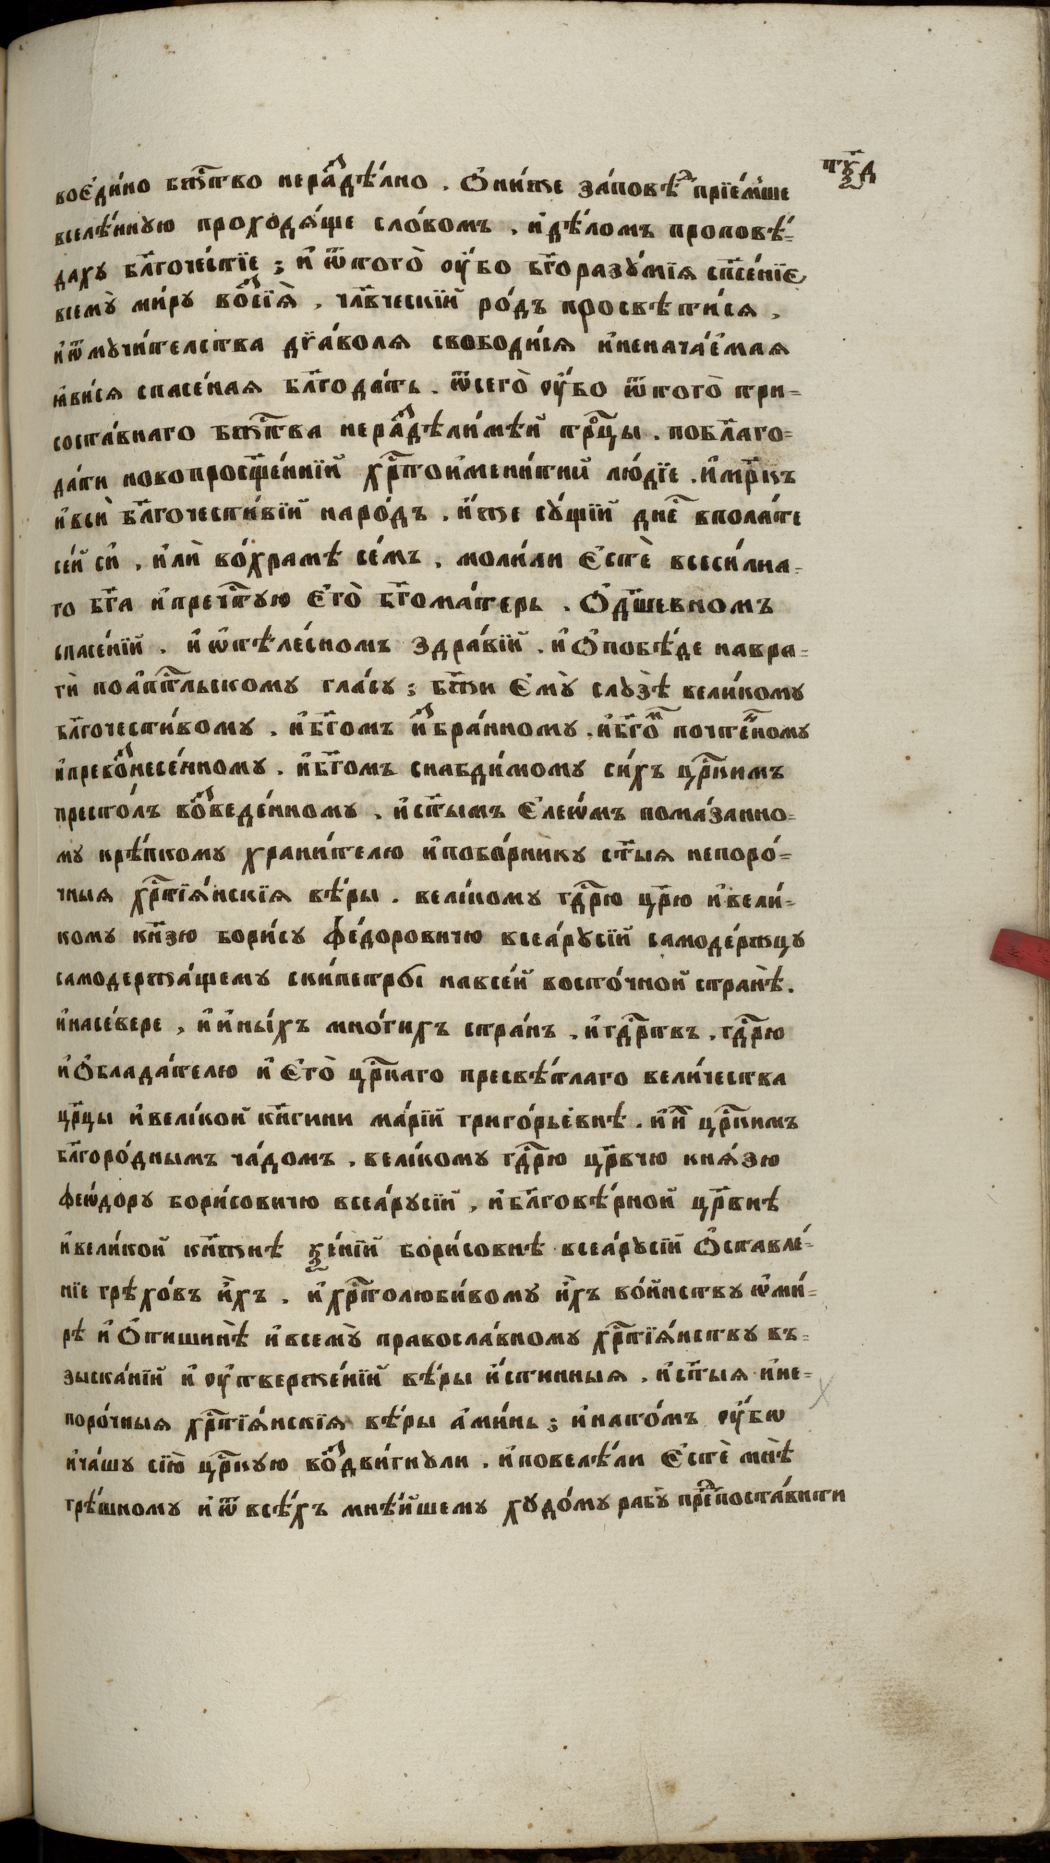 туд҃
воеди́но бж҃тво нера҆здѣ́лно . О҆ни́же за́повѣ прїе́мше
вселе́нную проходѧ́ще сло́вомъ , и҆дѣ́ломъ проповѣ́=
даху бл҃гоче́стїе ; и҆ ѿтого̀ ѹ҆́бо бг҃оразу́мїѧ сп҃се́нїе
всему̀ ми́ру возсїѧ̀ , чл҃вческїй ро́дъ просвѣти́сѧ ,
и҆ѿмучи́телства дїа́волѧ свободи́сѧ и҆неначае́маѧ
ꙗ҆ви́сѧ спасе́наѧ бл҃года́ть . ѿсего̀ ѹ҆́бо ѿтого̀ три=
соста́внаго бж҃тва нераздѣли́мѣй трⷪ҇цы . побл҃го=
да́ти новопросвѣще́ннїй хрⷭ҇тоимени́тїй лю́дїе . и҆мр҃къ
и҆ве́сь бл҃гочести́вїй наро́дъ , и҆́же су́щїй дне́сь вполатѣ
се́й си̑ , и҆лѝ во́храмѣ се́мъ , моли́ли е҆стѐ всеси́лна=
го бг҃а и҆пречⷭ҇тую е҆го̀ бг҃ома́терь . О҆дш҃евномъ
спасе́нїй . и҆ ѡ҆тѣле́сномъ здра́вїй . и҆ О҆побѣ́де навра=
гѝ поапⷭ҇тльскому гла́су ; бж҃и е҆му̀ слу́зѣ вели́кому
бл҃гочести́вому . и҆бг҃омъ и҆збра́нному . и҆бг҃омъ почте́нному
и҆превознесе́нному . и҆бг҃омъ снабди́мому си́хъ црⷭ҇кимъ
престо́лъ возведе́нному , и҆ст҃ымъ е҆лео́мъ пома́занно=
му крѣ́пкому храни́телю и҆побо́рнику ст҃ыѧ непоро́=
чныѧ хрⷭ҇тїѧ́нскїѧ вѣ́ры . вели́кому гдⷭ҇рю цр҃ю и҆вели́=
кому кн҃зю бори́су фе́доровичю всеа́русїй самоде́ржцу
самодержа́щему ски́петры навсе́й восто́чной странѣ̀ .
и҆насе́вере , и҆ и҆ны́хъ мно́гихъ стра́нъ , и҆гдⷭ҇рствъ , гдⷭ҇рю
и҆О҆блада́телю и҆ е҆го̀ црⷭ҇каго пресвѣ́тлаго вели́чества
цр҃цы и҆вели́кой кн҃гини ма́рїй григо́рьевнѣ . и҆и҆́хъ црⷭ҇кимъ
бл҃горо́днымъ ча́домъ . вели́кому гдⷭ҇рю цр҃вчю кнѧ́зю
фео́дору бори́совичю всеа́русїй , и҆бл҃говѣ́рной цр҃внѣ
и҆вели́кой кн҃жнѣ ѯе́нїй бори́совнѣ всеа́русїй О҆ставле́=
нїе грѣхо́въ и҆̀хъ . и҆ хрⷭ҇толюби́вому и҆̀хъ во́йнству ѡ҆ми́=
рѣ и҆ О҆тишинѣ̀ и҆всему̀ правосла́вному хрⷭ҇тїѧ́нству въ=
зыска́нїй и҆ ѹ҆тверже́нїй вѣ́ры и҆́стинныѧ , и҆ст҃ыѧ и҆не=
поро́чныѧ хрⷭ҇тїѧ́нскїѧ вѣ́ры а҆ми́нь ; и҆нато́мъ ѹ҆́бо
и҆ча́шу сїю̀ црⷭ҇кую воздви́гнули . и҆повелѣ́ли е҆стѐ мнѣ̀
грѣ́шному и҆ ѿвсѣ́хъ мнѣ́йшему худо́му рабу̀ пре́дпоста́вити